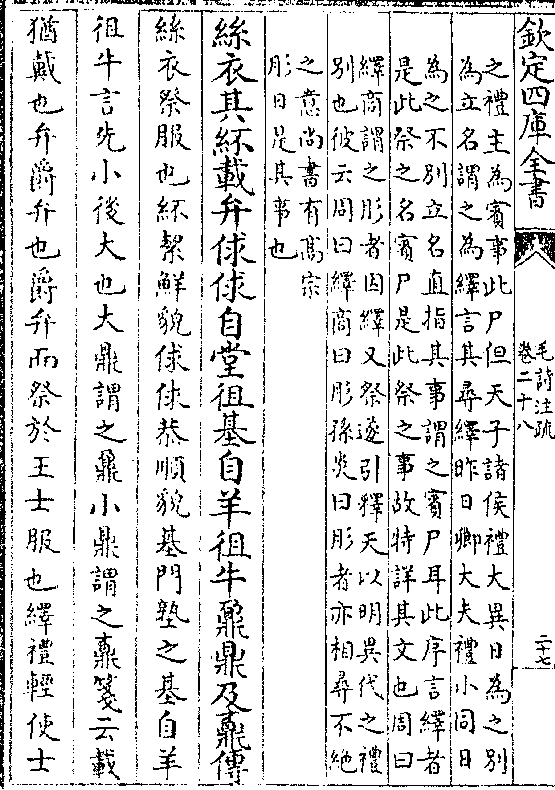 欽定四庫全書
毛詩注疏
卷二十八
二十七
之禮主為賓事此尸但天子諸侯禮大異日為之別
為立名謂之為繹言其尋繹昨日卿大夫禮小同日
為之不別立名直指其事謂之賓尸耳此序言繹者
是此祭之名賓尸是此祭之事故特詳其文也周曰
繹商謂之肜者因繹又祭遂引釋天以明異代之禮
別也彼云周曰繹商曰肜孫炎曰肜者亦相尋不絶
之意尚書有髙宗
肜日是其事也
絲衣其紑載弁俅俅自堂徂基自羊徂牛鼐鼎及鼒傳
絲衣祭服也紑絜鮮貌俅俅恭順貌基門塾之基自羊
徂牛言先小後大也大鼎謂之鼐小鼎謂之鼒箋云載
猶戴也弁爵弁也爵弁而祭於王士服也繹禮輕使士